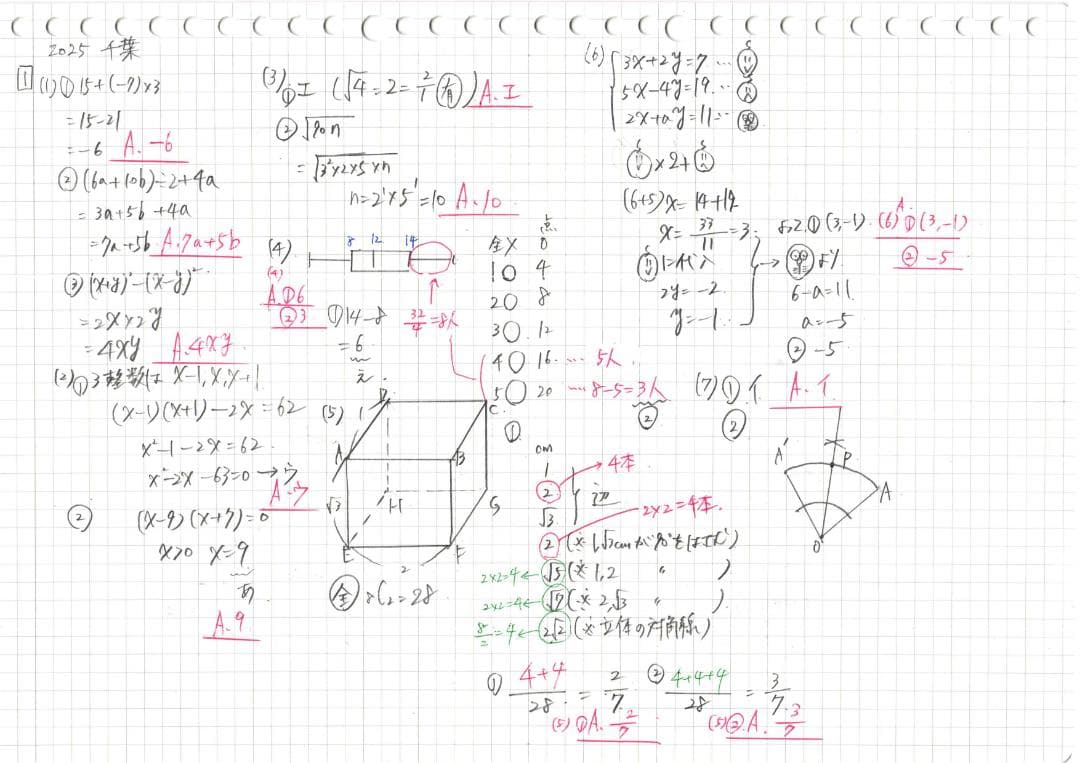 2025 千葉
1 (1) ① 15+(-7)×3
=15-21
=-6 A. -6
② (6a+10b)÷2+4a
=3a+5b+4a
=7a+5b A. 7a+5b
③ (x+y)²-(x-y)²
=2x×2y
=4xy A. 4xy
(2) ① 3整数は x-1, x, x+1
(x-1)(x+1)-2x=62
x²-1-2x=62
x²-2x-63=0 → ウ
A. ウ
② (x-9)(x+7)=0
x>0 x=9
あ
A. 9
(3) ① エ (√4=2=2/1 有) A. エ
② √90n
=√3²×2×5×n
n=2¹×5¹=10 A. 10
(4) 8 12 14
(4)
A. ① 6
② 3
① 14-8
=6
え
32/4=8人
全× 0 点
1〇 4
2〇 8
3〇 12
4〇 16 … 5人
5〇 20 … 8-5=3人
②
(5) ①
D C
1
A B
√3
H G
E F
2
全 ₈C₂=28
cm
1
2 → 4本
√3
辺
2×2=4本
2 (※1,√3cmが
2×2=4 ← √5 (※1,2 〃 )
2×2=4 ← √7 (※2,√3 〃 )
8/2=4 ← 2√2 (※立体の対角線)
① 4+4/28=2/7
(5) ① A. 2/7
② 4+4+4/28=3/7
(5) ② A. 3/7
(6) 3x+2y=7 …
5x-4y=19 …
2x+ay=11 …
×2+
(6+5)x=14+19
x=33/11=3
に代入
2y=-2
y=-1
よって、① (3,-1)
より
6-a=11
a=-5
② -5
A.
(6) ① (3,-1)
② -5
(7) ① イ A. イ
②
A' P A
O